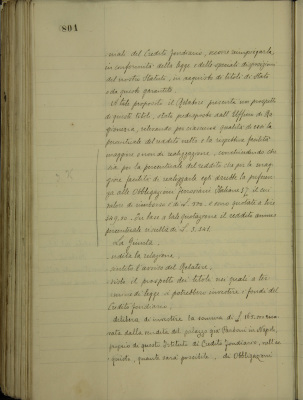 801
onali del Credito Fondiario, ovvero reimpiegarla,
in conformità della legge e delle speciali disposizioni
del nostro Statuto, in acquisto di titoli di Stato
o da questo garantiti.
A tale proposito il Relatore presenta un prospetto
di questi titoli, stato predisposto dall'Ufficio di Ra-
gioneria, notando per ciascuna qualità di essi la
percentuale del reddito netto e la rispettiva facilità
maggiore o minore di realizzazione, concludendo che
sia per la percentuale del reddito sia per la mag-
giore facilità di realizzarli egli darebbe la preferen-
za alle Obbligazioni ferroviarie Italiane 3% il cui
valore di rimborso è di L. 500 e sono quotate a lire
In base a tale quotazione il reddito annuo
percentuale risulta di L.
La Giunta,
udita la relazione,
sentito l'avviso del Relatore,
visto il prospetto dei titoli nei quali a ter-
mine di legge si potrebbero investire i fondi del
Credito Fondiario,
delibera di investire la somma di L.
rata dalla vendita del palazzo già in Napoli,
proprio di questo Istituto di Credito Fondiario, nell'ac-
quisto, quanto sarà possibile, di Obbligazioni